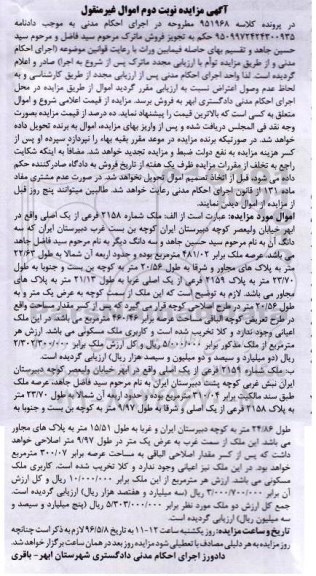 آگهی مزایده نوبت دوم اموال غیرمنقول
در پرونده کلاسه ۹۵۱۹۶۸ مطروحه در اجرای احکام مدنی به موجب دادنامه
۹۵۰۹۹۷۲۴۲۴۳۰۰۹۳۵ حکم به تجویز فروش ماترک مرحوم سید فاضل و مرحوم سید
حسین جاهد و تقسیم بهای حاصله فیمابین وراث با رعایت قوانین موضوعه (اجرای احکام
مدنی و از طریق مزایده توأم با ارزیابی مجدد ماترک پس از شروع به اجرا) صادر و اعلام
گردیده است. لذا واحد اجرای احکام مدنی پس از ارزیابی مجدد از طریق کارشناسی و به
لحاظ عدم وصول اعتراض نسبت به ارزیابی مقرر گردید اموال از طریق مزایده در محل
اجرای احکام مدنی دادگستری ابهر به فروش برسد. مزایده از قیمت اعلامی شروع و اموال
متعلق به کسی است که بالاترین قیمت را پیشنهاد نماید. ده درصد از قیمت مزایده بصورت
وجه نقد فی المجلس دریافت شده و پس از واریز بهای مزایده، اموال به برنده تحویل داده
خواهد شد. در صورتیکه برنده مزایده در موعد مقرر بقیه بهاء را نپردازد سپرده او پس از
کسر هزینه مزایده به نفع دولت ضبط و مزایده تجدید خواهد شد. مضافا به اینکه شکایت
راجع به تخلف از مقررات مزایده ظرف یک هفته از تاریخ فروش به دادگاه صادرکننده حکم
داده می شود، قبل از اتخاذ تصمیم اموال تحویل نخواهد شد. در صورت عدم مشتری مفاد
ماده ۱۳۱ از قانون اجرای احکام مدنی رعایت خواهد شد. طالبین میتوانند پنج روز قبل
از مزایده از اموال دیدن نمایند.
اموال مورد مزایده: عبارت است از الف: ملک شماره ۲۱۵۸ فرعی از یک اصلی واقع در
ابهر خیابان ولیعصر کوچه دبیرستان ایران کوچه بن بست غرب دبیرستان ایران که سه
دانگ آن به نام مرحوم سید حسین جاهد و سه دانگ دیگر به نام مرحوم سید فاضل جاهد
می باشد. عرصه ملک برابر ۴۸۱/۰۲ مترمربع بوده و حدود اربعه آن شمالا به طول ۲۲/۶۳
متر به پلاک های مجاور و شرقا به طول ۲۰/۵۶ متر به کوچه بن بست و جنوبا به طول
۲۳/۷۰ متر به پلاک ۲۱۵۹ فرعی از یک اصلی غربا به طول ۲۱/۱۳ متر به پلاک های
مجاور می باشد. لازم به توضیح است که این ملک از سمت کوچه به عرض یک متر و به
طول ۲۰/۵۶ متر در طرح اصلاحی کوچه قرار می گیرد که پس از کسر مقدار مساحت واقع
در طرح تعریض کوچه الباقی مساحت عرصه برابر ۴۶۰/۴۶ مترمربع می باشد. در این ملک
اعیانی وجود ندارد و کلا تخریب شده است و کاربری ملک مسکونی می باشد. ارزش هر
مترمربع از ملک مذکور برابر ۵/۰۰۰/۰۰۰ ریال و کل ارزش ملک برابر ۲/۳۰۲/۳۰۰/۰۰۰
ریال (دو میلیارد و سیصد و دو میلیون و سیصد هزار ریال) ارزیابی گردیده است.
ب: ملک شماره ۲۱۵۹ فرعی از یک اصلی واقع در ابهر خیابان ولیعصر کوچه دبیرستان
ایران نبش غربی کوچه پشت دبیرستان ایران به نام مرحوم سید فاضل جاهد، عرصه ملک
طبق سند مالکیت برابر ۳۱۰/۰۴ مترمربع بوده و حدود اربعه آن شمالا به طول ۲۳/۷۰ متر
به پلاک ۲۱۵۸ فرعی از یک اصلی و شرقا به طول ۹/۹۷ متر به کوچه بن بست و جنوبا به
طول ۲۴/۸۶ متر به کوچه دبیرستان ایران و غربا به طول ۱۵/۵۱ متر به پلاک های مجاور
می باشد. این ملک از سمت غرب به عرض یک متر در طول ۹/۹۷ متر اصلاحی خواهد
داشت که پس از کسر مقدار اصلاحی الباقی به مساحت عرصه برابر ۳۰۰/۰۷ مترمربع
خواهد بود. در این ملک نیز اعیانی وجود ندارد و کلا تخریب شده است. کاربری ملک
مسکونی می باشد. ارزش هر مترمربع از این ملک برابر ۱۰/۰۰۰/۰۰۰ ریال و کل ارزش
آن برابر ۳/۰۰۰/۷۰۰/۰۰۰ ریال (سه میلیارد و هفتصد هزار ریال) ارزیابی گردیده است.
جمع کل ارزش دو ملک مورد نظر برابر ۵/۳۰۳/۰۰۰/۰۰۰ ریال (پنج میلیارد و سیصد و
سه میلیون ریال) ارزیابی گردیده است.
تاریخ و ساعت مزایده: روز یکشنبه ساعت ۱۲-۱۱ به تاریخ ۹۶/۵/۸ لازم به ذکر است چنانچه
روز مزایده به هر دلیلی مصادف با تعطیلی شود مزایده روز بعد در همان ساعت برگزار خواهد شد.
دادورز اجرای احکام مدنی دادگستری شهرستان ابهر- باقری